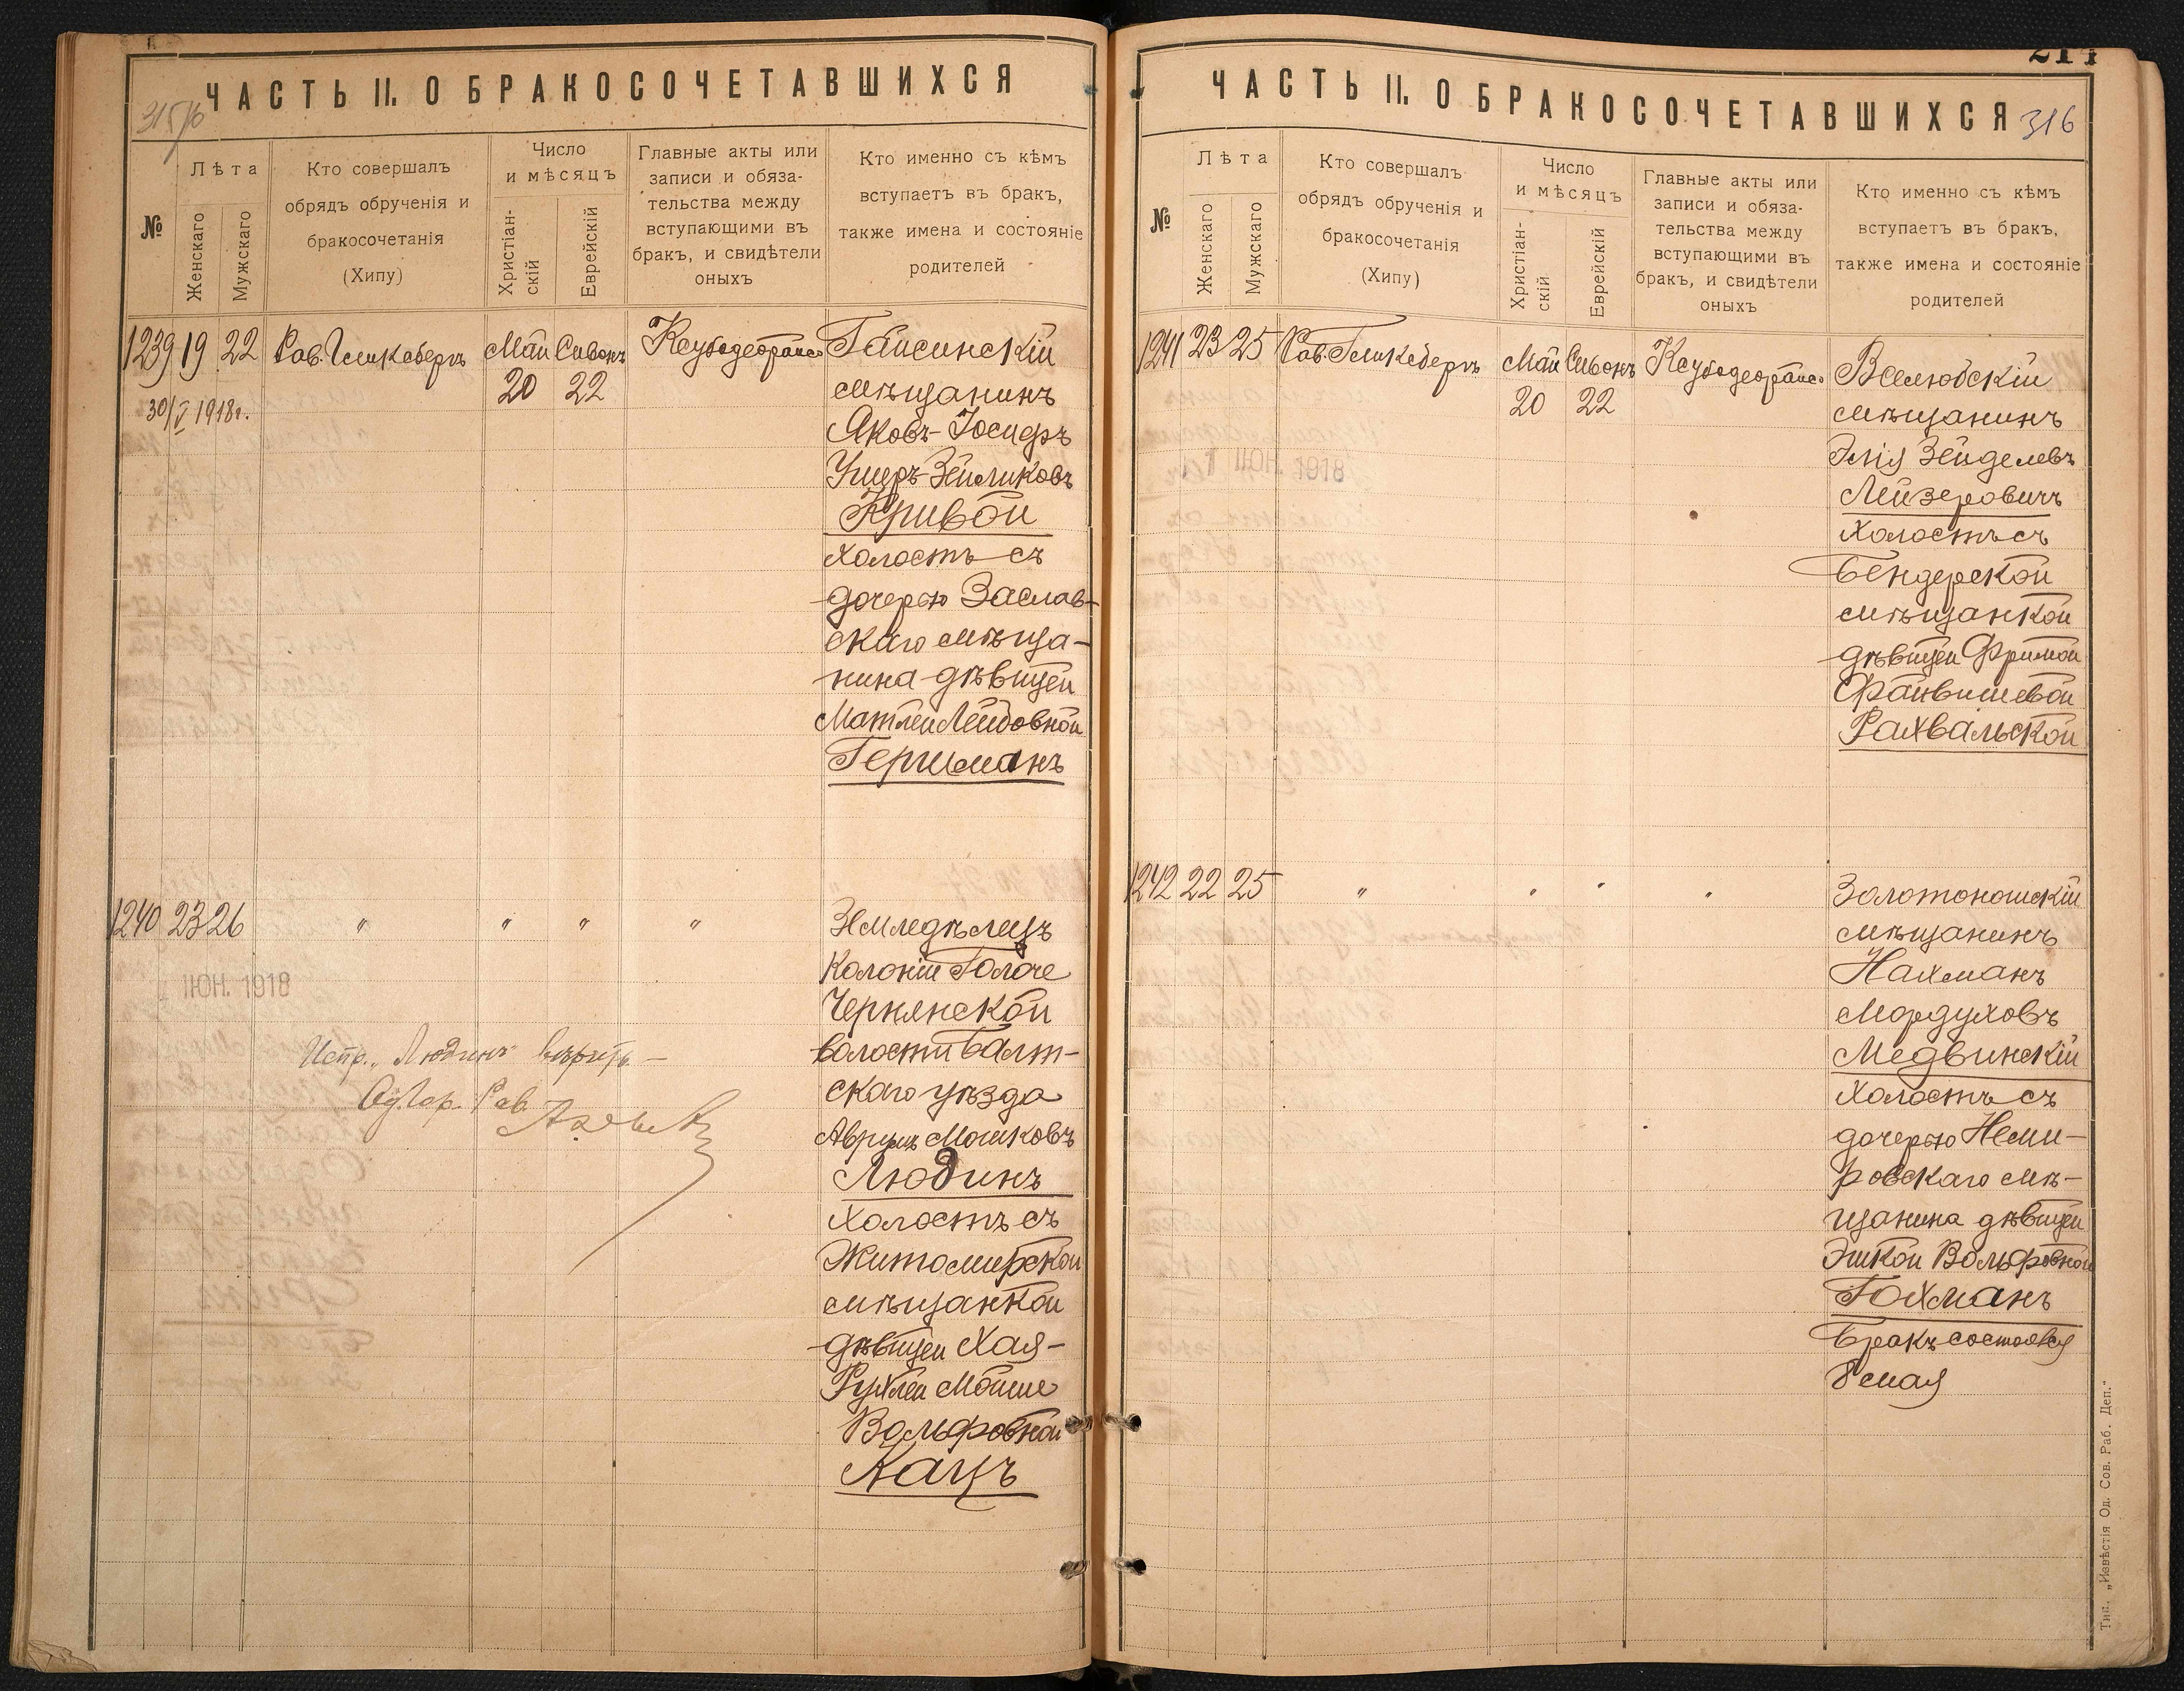 ЧАСТЬ II. О БРАКОСОЧЕТАВШИХСЯ
№
Лѣта
Женскаго
Мужскаго
Кто совершалъ
обрядъ обрученія и
бракосочетанія
(Хипу)
Число
и мѣсяцъ
Христіан-
скій
Еврейскій
Главные акты или
записи и обяза-
тельства между
вступающими въ
бракъ, и свидѣтели
оныхъ
Кто именно съ кѣмъ
вступаетъ въ бракъ,
также имена и состояніе
родителей
1239 19 22 Рав. Гликсбергъ Май Сивонъ
20 22
30/V 1918г.
Гайсинскій
мѣщанинъ
Яковъ-Іосифъ
Ушеръ-Зейликовъ
Кривой
холостъ съ
дочерью Заслав-
скаго мѣща-
нина дѣвицей
Матлей Лейбовной
Гершманъ
1240 23 26 " " " "
ІЮН. 1918
Испр. „Людинъ" вѣрить —
Од. Гор. Рав.
Земледѣлецъ
колоніи Голоче
Чернянской
волости Балт-
скаго уѣзда
Аврумъ Мошковъ
Людинъ
холостъ съ
Житомирской
мѣщанкой
дѣвицей Хая-
Рухлей Мойше
Вольфовной
Кацъ
ЧАСТЬ II. О БРАКОСОЧЕТАВШИХСЯ
316
№
Лѣта
Женскаго
Мужскаго
Кто совершалъ
обрядъ обрученія и
бракосочетанія
(Хипу)
Число
и мѣсяцъ
Христіан-
скій
Еврейскій
Главные акты или
записи и обяза-
тельства между
вступающими въ
бракъ, и свидѣтели
оныхъ
Кто именно съ кѣмъ
вступаетъ въ бракъ,
также имена и состояніе
родителей
1241 23 25 Рав. Гликсбергъ Май Сивонъ
20 22
1 ІЮН. 1918
Вселюбскій
мѣщанинъ
Элія Зейделевъ
Лейзеровичъ
холостъ съ
Бендерской
мѣщанкой
дѣвицей Фримой
Файвишевой
Рахвальской
1242 22 25 " " " "
Золотоношскій
мѣщанинъ
Нахманъ
Мордуховъ
Медвинскій
холостъ съ
дочерью Неми-
ровскаго мѣ-
щанина дѣвицей
Эткой Вольфовной
Гохманъ
Бракъ состоялся
8 мая
Тип. „Извѣстія Од. Сов. Раб. Деп."